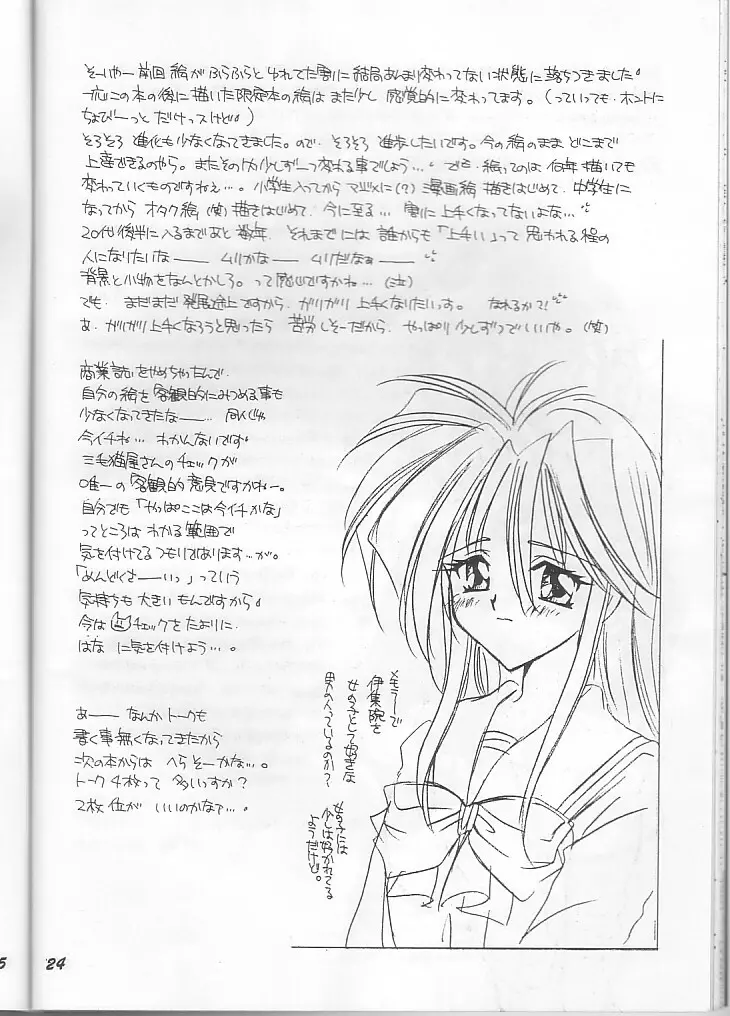 そーいやー前回 絵が ふらふらと ゆれてた割に 結局あんまり変わってない 状態に 落ちつきました。
一応この本の後に描いた限定本の絵は まだ少し 感覚的に変わってます。(っていっても・ホントに
ちょびーっと だけっスけど。)
そろそろ 進化も少なくなってきました。ので、そろそろ 進歩したいです。今の絵のまま どこまで
上達できるのやら。またその内少しずーつ変わる事でしょう…。でも・絵ってのは 何年 描いても
変わっていくものですねぇ…。小学生入ってから マジメに(?) 漫画絵 描きはじめて、中学生に
なってから オタク絵 (笑) 描きはじめて、今に至る… 割に上手くなってないよな…
20代後半に入るまであと 数年、それまでには 誰からも「上手い」って 思われる程の
人になりたいなーー ムリかなー ムリだなぁー
背景と小物をなんとかしろ。って感じですかね… (泣)
でも、まだまだ 発展途上ですから、ガリガリ上手くなりたいっす。 なれるか?!
あ、ガリガリ上手くなろうと思ったら 苦労しそーだから、やっぱり少しずつでいいや。(笑)
商業誌をやめちゃったんで、
自分の絵を 客観的にみつめる事も
少なくなってきたなーー… 同人じゃ
今イチね… わかんないです。
三毛猫屋さんのチェックが
唯一の客観的意見ですかねー。
自分でも「やっぱここは今イチかな」
ってところは わかる範囲で
気を付けてるつもりではあります…が。
「めんどくさーーいっ」っていう
気持ちも大きい もんですから。
今は チェックをたよりに
はな に気を付けよう…。
あーー なんかトークも
書く事無くなってきたから
次の本からは へらそーかな…。
トーク4枚って 多いっすか?
2枚 位が いいのかなァ…。
メモラーで
伊集院を
女の子として好きな
男の人っているのか?
女の子には
少しは好かれてる
ようだけど。
24
5